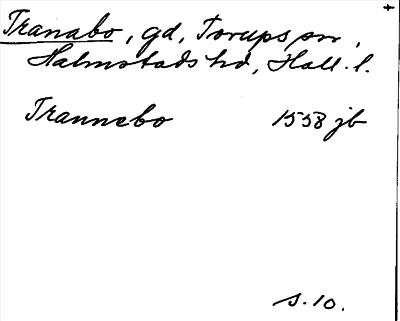 +
Tranabo, gd, Torups sn,
Halmstads hd, Hall. l.
Trannebo 1558 jb
s. 10.